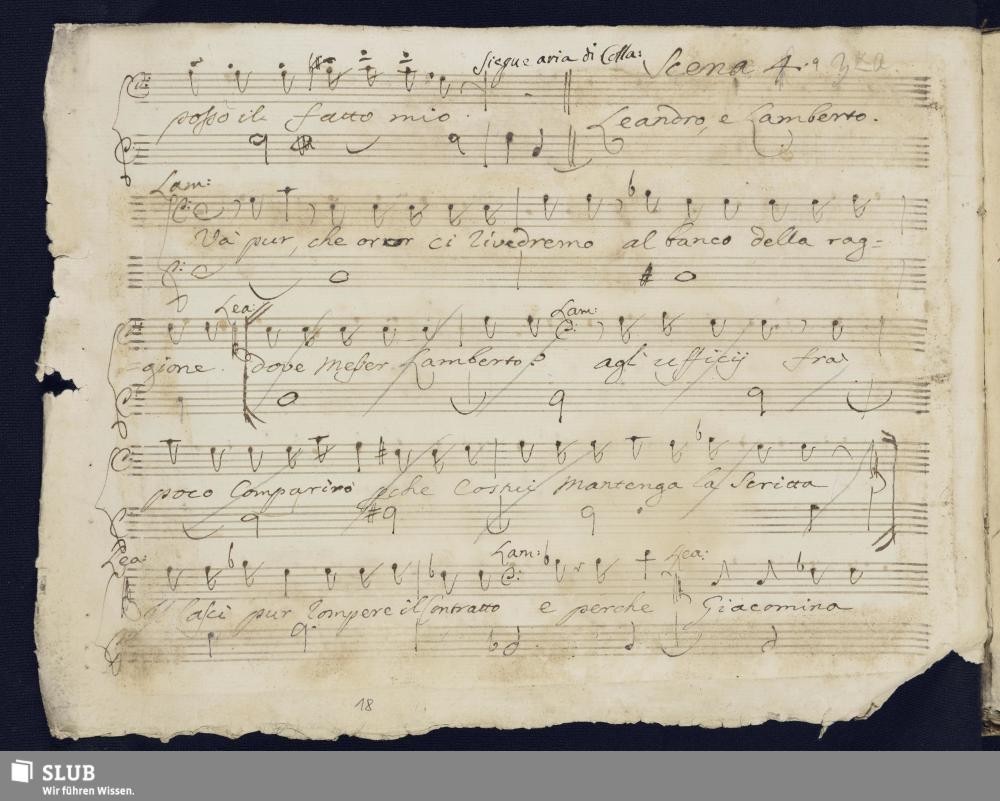 Siegue aria di Colla: Scena 4.ª
posso il fatto mio. Leandro, e Lamberto.
Lam:
Và pur, che or or ci rivedremo al banco della rag=
Lea: Lam:
=gione. dove Messer Lamberto? agl'ufficij frà
poco Comparirò pche Costui Mantenga la Scritta
Lea: Lam: Lea:
lasci pur rompere il Contratto e perche Giacomina
18
SLUB
Wir führen Wissen.